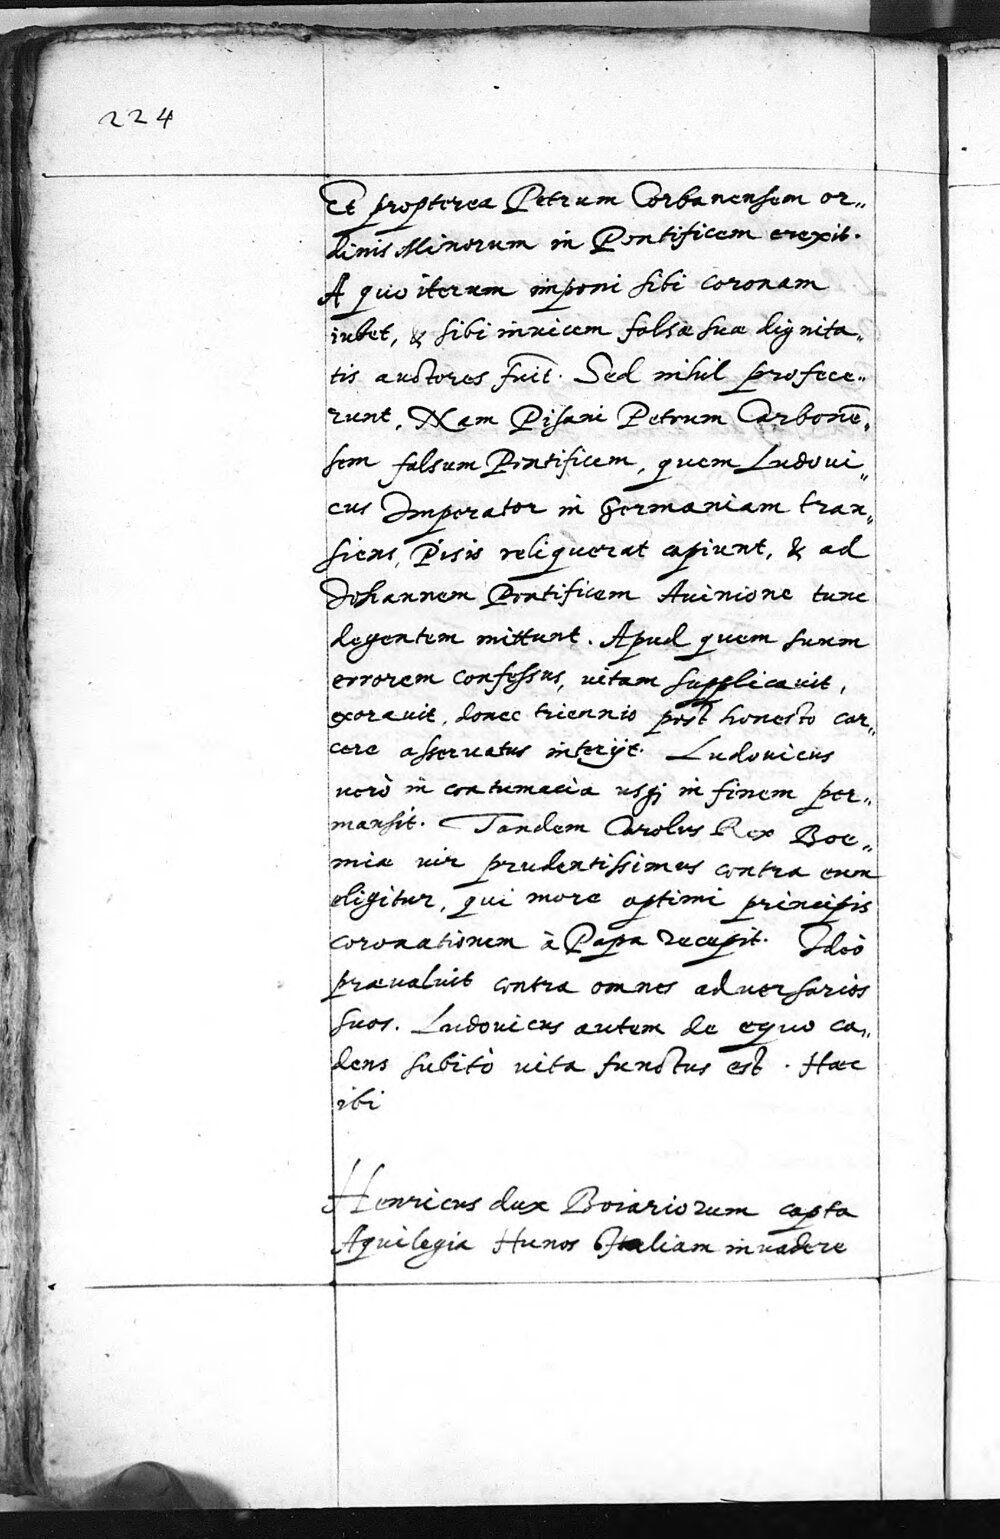 224
Et propterea Petrum Corbanensem or„
dinis Minorum in Pontificem erexit.
A quo iterum imponi sibi coronam
iubet, & sibi inuicem falsæ suæ dignita„
tis auctores fuit. Sed nihil profece„
runt, Nam Pisani Petrum Carbonē„
sem falsum Pontificem, quem Ludoui„
cus Imperator in Germaniam tran„
siens, Pisis reliquerat capiunt, & ad
Johannem Pontificem Auinione tunc
degentem mittunt. Apud quem suum
errorem confessus, uitam supplicauit,
exorauit, donec triennio post honesto car„
cere asseruatus interijt. Ludouicus
uerò in contumacia usq; in finem per„
mansit. Tandem Carolus Rex Boe„
miæ uir prudentissimus contra eum
eligitur, qui more optimi principis
coronationem à Papa recepit. Ideò
præualuit contra omnes aduersarios
suos. Ludouicus autem de equo ca„
dens subitò uita functus est. Hæc
ibi
Henricus dux Boiariorum capta
Aquilegia Hunos Italiam inuadere